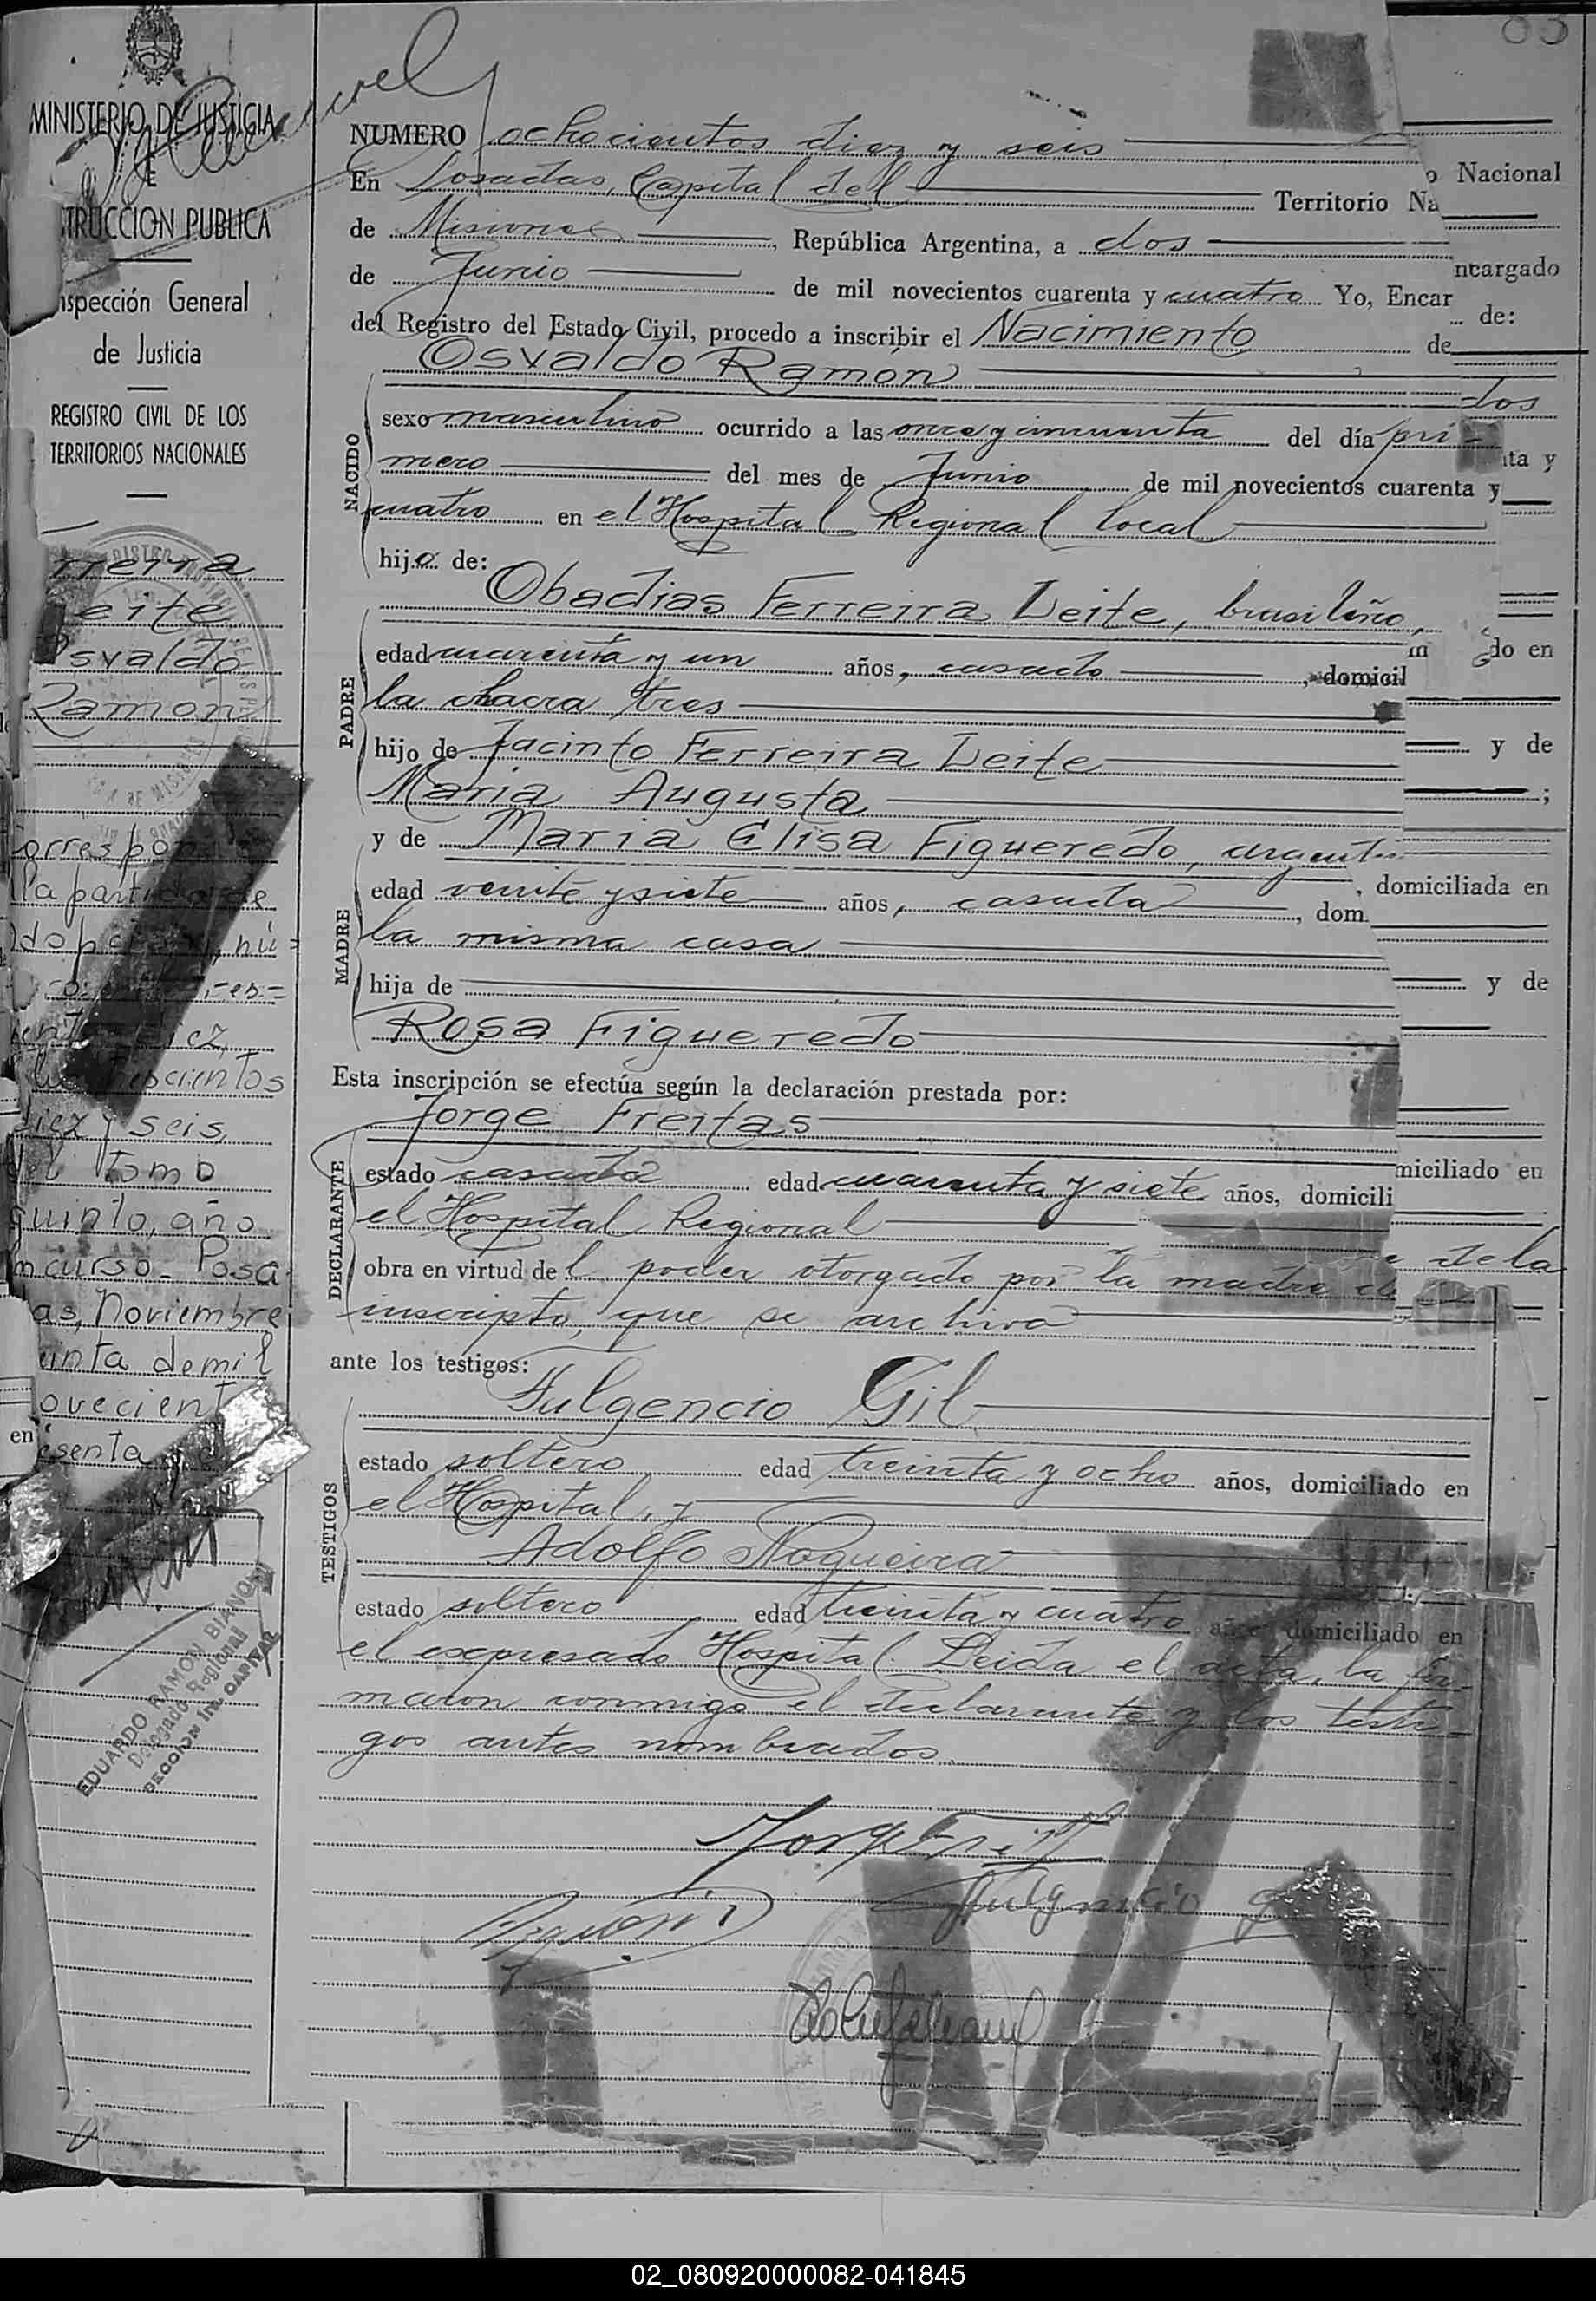 83
MINISTERIO DE JUSTICIA
E
TRUCCION PUBLICA
nspección General
de Justicia
REGISTRO CIVIL DE LOS
TERRITORIOS NACIONALES
rreira
eite
Osvaldo
Ramon
la partida de
diez y seis,
tomo
quinto, año
curso. Posa
as, Noviembre
de mil
ovecient
esenta
en
EDUARDO RAMON BIANCHI
Delegado Regional
SECCION 1ra. CAPITAL
NUMERO ochocientos diez y seis
En Posadas, Capital del Territorio Na
de Misiones, República Argentina, a dos
de Junio de mil novecientos cuarenta y cuatro Yo, Encar
del Registro del Estado Civil, procedo a inscribir el Nacimiento de
Osvaldo Ramón
NACIDO
sexo masculino ocurrido a las once y cincuenta del día pri-
mero del mes de Junio de mil novecientos cuarenta y
cuatro en el Hospital Regional local
hijo de:
PADRE
Obadias Ferreira Leite, brasileño,
edad cuarenta y un años, casado, domicil
la chacra tres
hijo de Jacinto Ferreira Leite
Maria Augusta
MADRE
y de Maria Elisa Figueredo, argent
edad veinte y siete años, casada, dom
la misma casa
hija de
Rosa Figueredo
Esta inscripción se efectúa según la declaración prestada por:
DECLARANTE
Jorge Freitas
estado casado edad cuarenta y siete años, domicili
el Hospital Regional
obra en virtud del poder otorgado por la madre del
inscripto, que se archiva
ante los testigos:
TESTIGOS
Fulgencio Gil
estado soltero edad treinta y ocho años, domiciliado en
el Hospital, y
Adolfo Nogueira
estado soltero edad treinta y cuatro años domiciliado en
el expresado Hospital. Leida el acta, la fir-
maron conmigo el declarante y los testi-
gos antes nombrados.
o Nacional
ncargado
de:
dos
nta y
do en
y de
;
domiciliada en
y de
miciliado en
de la
02_080920000082-041845